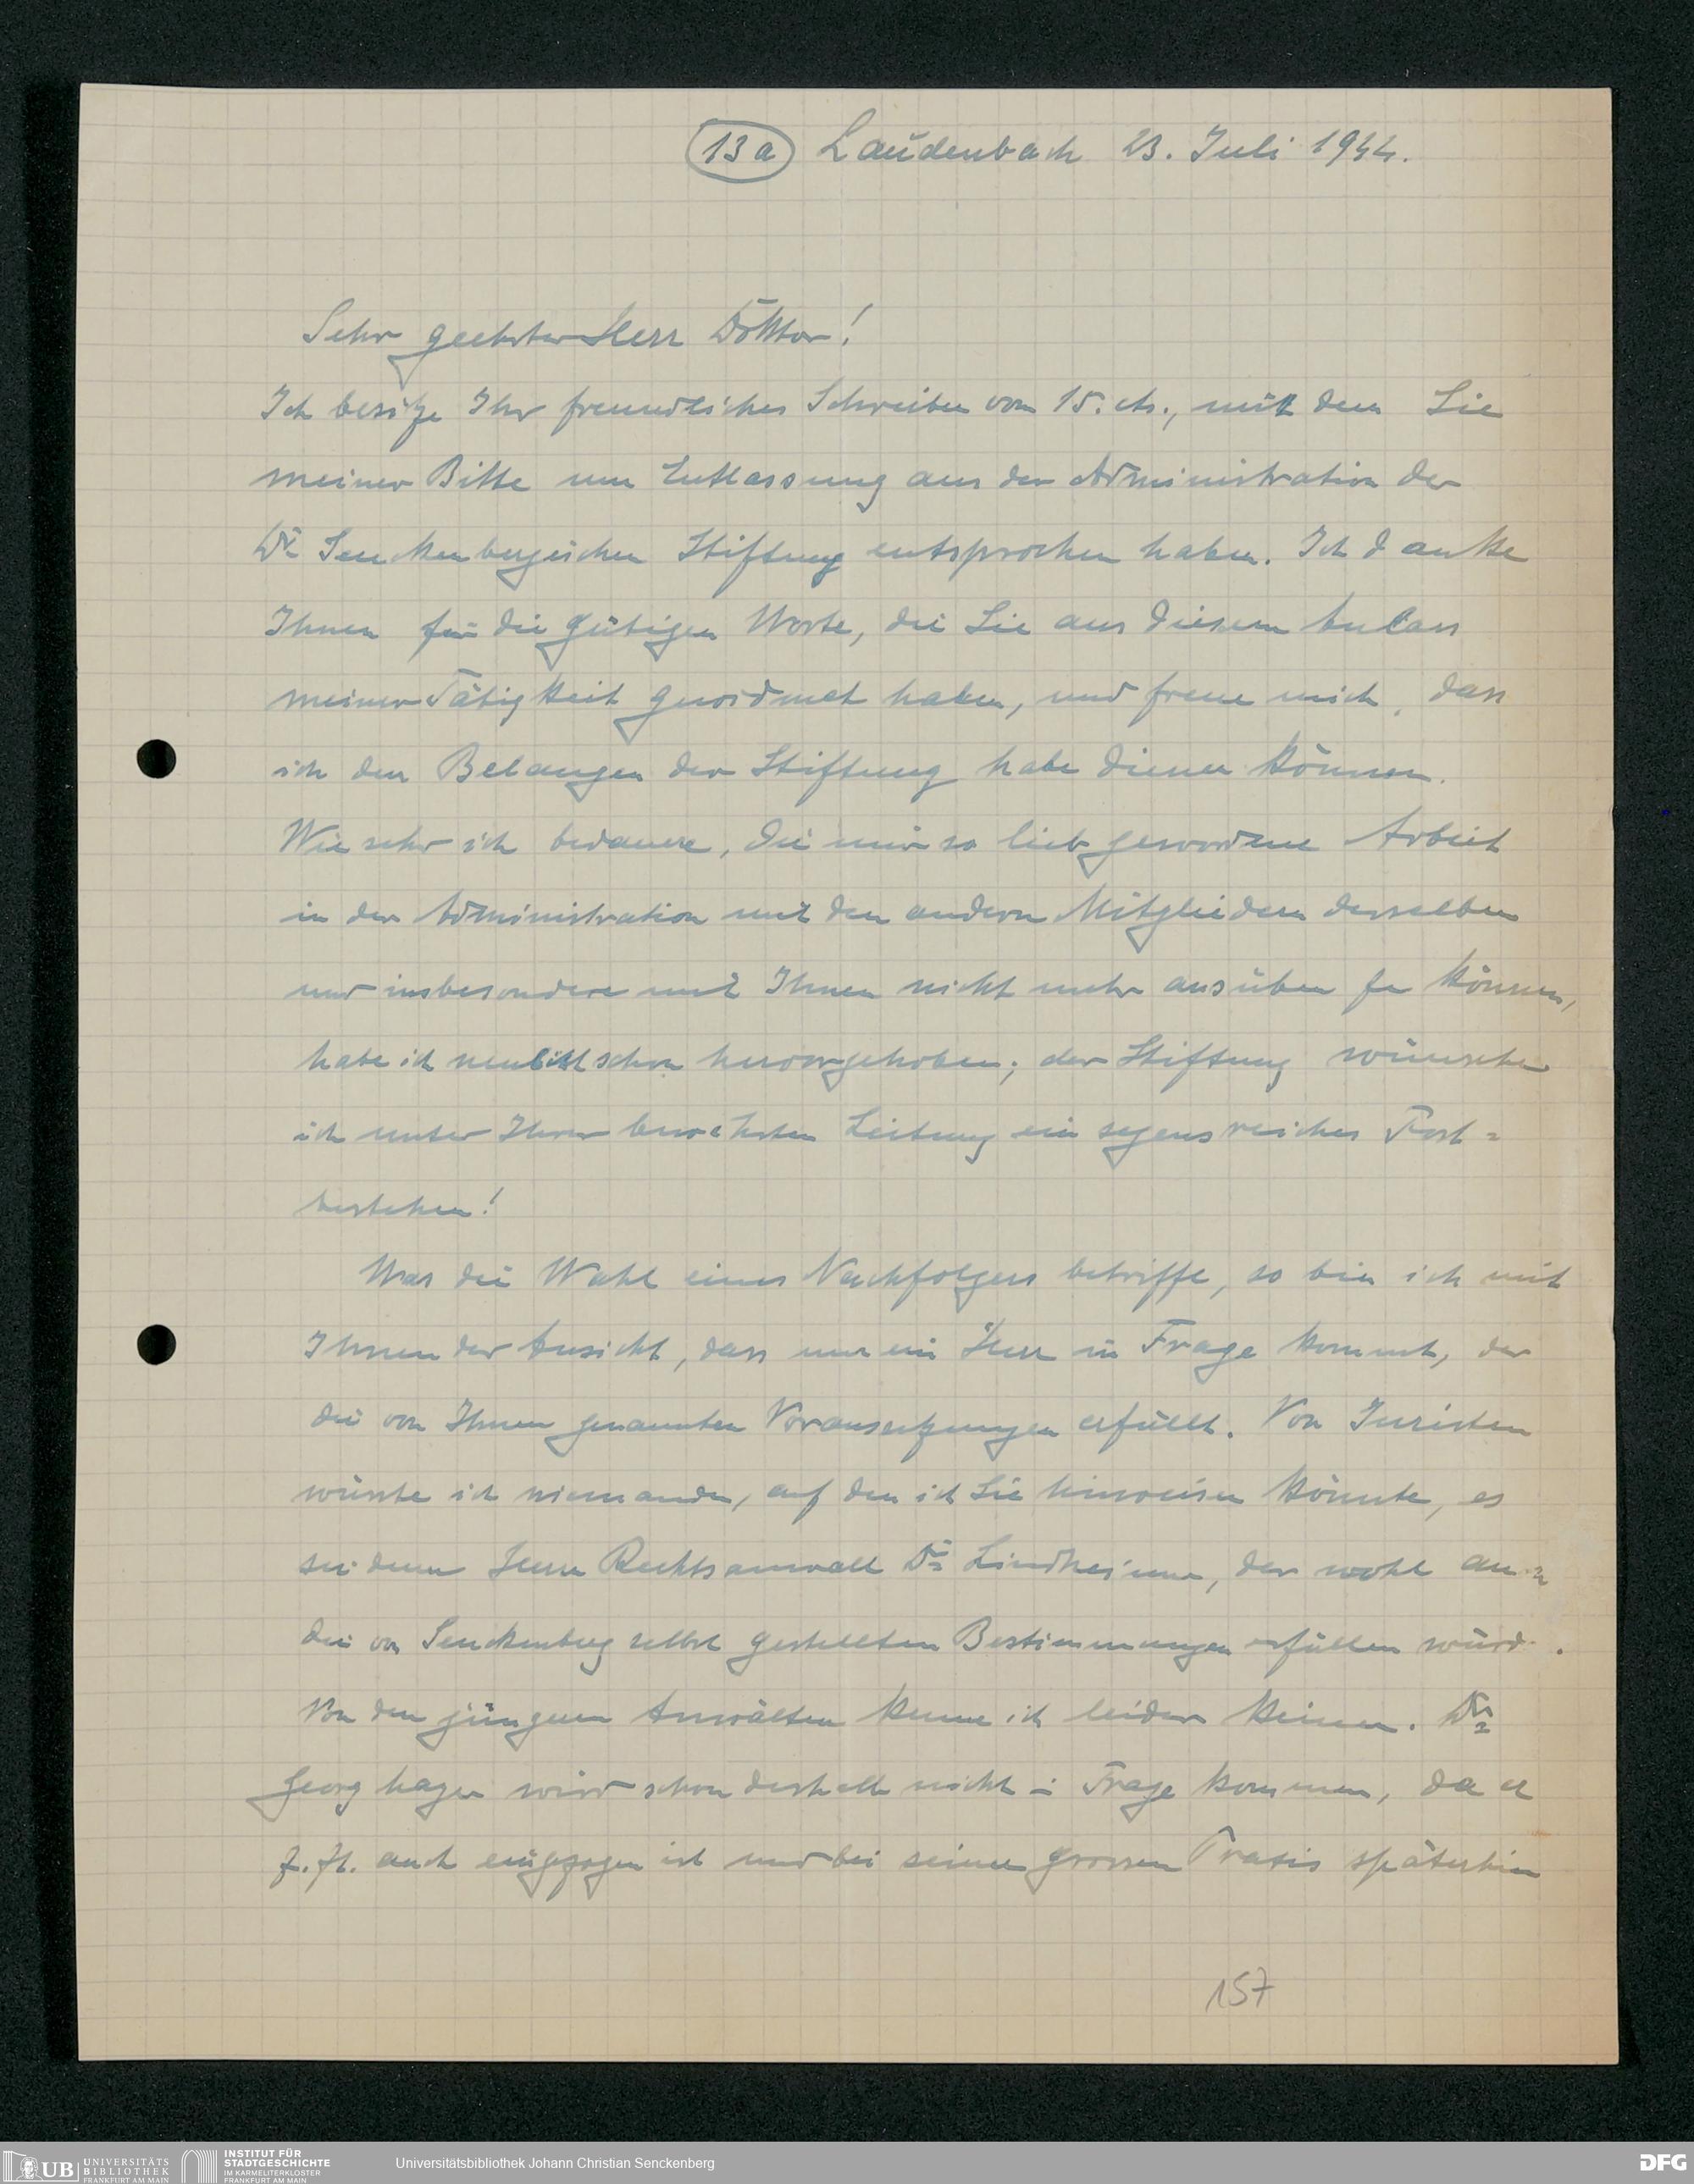 13a Laudenbach 23. Juli 1944.
Sehr geehrter Herr Doktor!
Ich besitze Ihr freundliches Schreiben vom 15. cts., mit dem Sie
meiner Bitte um Entlassung aus der Administration der
Dr. Senckenbergischen Stiftung entsprochen haben. Ich danke
Ihnen für die gütigen Worte, die Sie aus diesem Anlass
meiner Tätigkeit gewidmet haben, und freue mich, dass
ich den Belangen der Stiftung habe dienen können.
Wie sehr ich bedauere, die mir so lieb gewordene Arbeit
in der Administration mit den andern Mitgliedern derselben
und insbesondere mit Ihnen nicht mehr ausüben zu können,
habe ich neulich schon hervorgehoben; der Stiftung wünsche
ich unter Ihrer bewährten Leitung ein segensreiches Fort-
bestehen!
Was die Wahl eines Nachfolgers betrifft, so bin ich mit
Ihnen der Ansicht, dass nur ein Herr in Frage kommt, der
die von Ihnen genannten Voraussetzungen erfüllt. Von Juristen
wüsste ich niemanden, auf den ich Sie hinweisen könnte, es
sei denn Herrn Rechtsanwalt Dr. Lindheimer, der wohl
die von Senckenberg selbst gestellten Bestimmungen erfüllen
Von den jüngeren Anwälten kenne ich leider keinen. Dr.
Georg Hagen wird schon deshalb nicht in Frage kommen, da er
z. Zt. auch eingezogen ist und bei seiner grossen Praxis späterhin
157
UB UNIVERSITÄTS
BIBLIOTHEK
FRANKFURT AM MAIN
INSTITUT FÜR
STADTGESCHICHTE
IM KARMELITERKLOSTER
FRANKFURT AM MAIN
Universitätsbibliothek Johann Christian Senckenberg
DFG